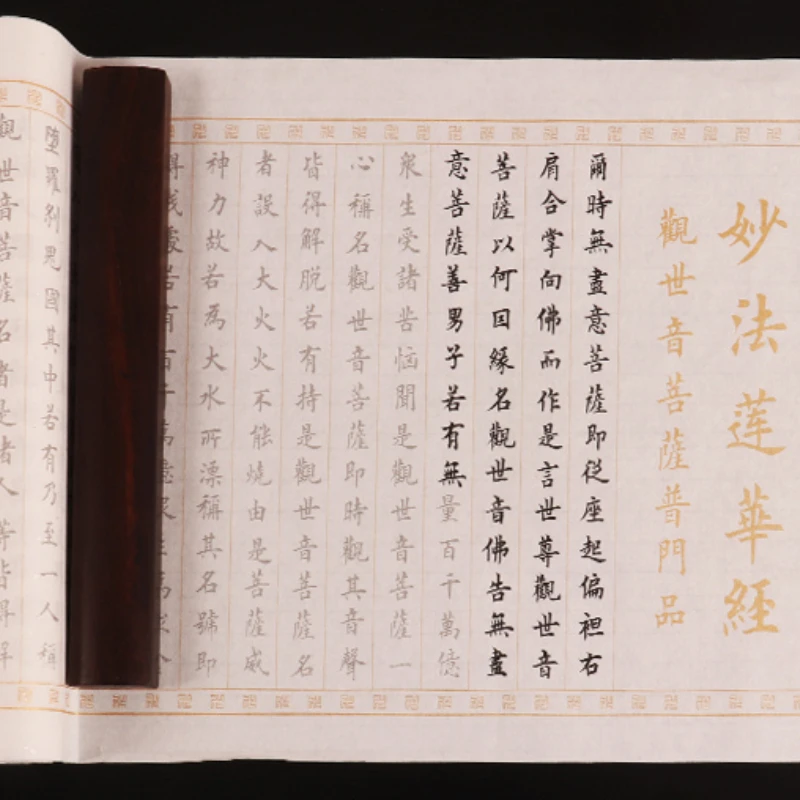 妙法莲華經
觀世音菩薩普門品
爾時無盡意菩薩即從座起偏袒右
肩合掌向佛而作是言世尊觀世音
菩薩以何因緣名觀世音佛告無盡
意菩薩善男子若有無量百千萬億
眾生受諸苦恼聞是觀世音菩薩一
心稱名觀世音菩薩即時觀其音聲
皆得解脫若有持是觀世音菩薩名
者設入大火火不能燒由是菩薩威
神力故若為大水所漂稱其名號即
墮羅剎鬼國其中若有乃至一人稱
觀世音菩薩名者是諸人等皆得解